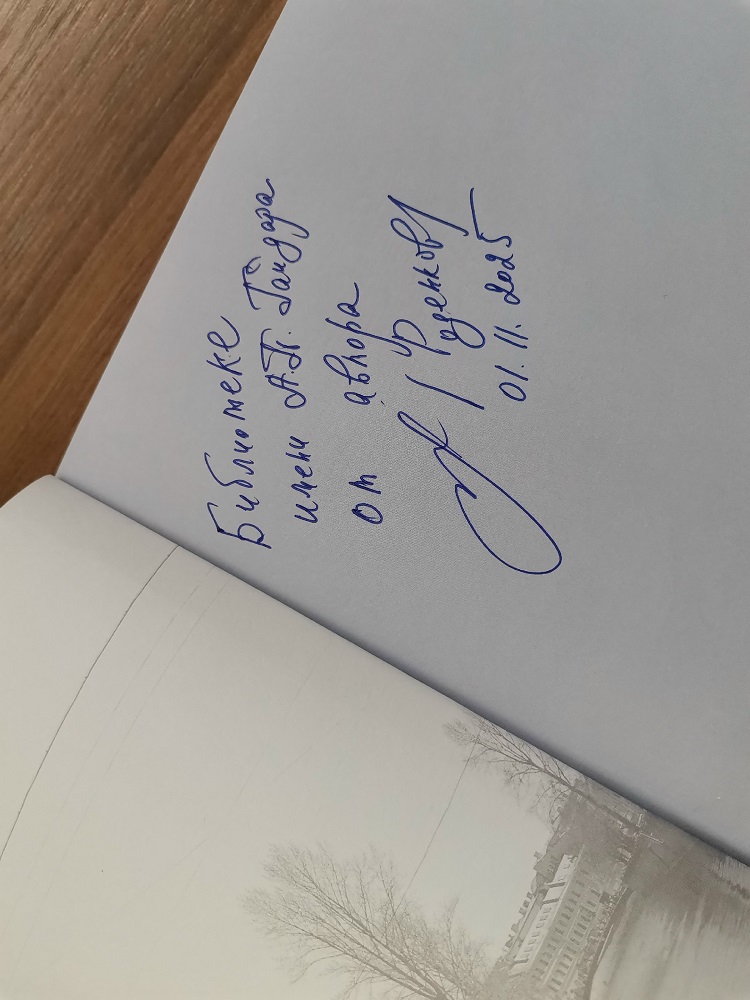 Библиотеке
имени А.П. Гайдара
от автора
/ Руденков /
01.11.2025